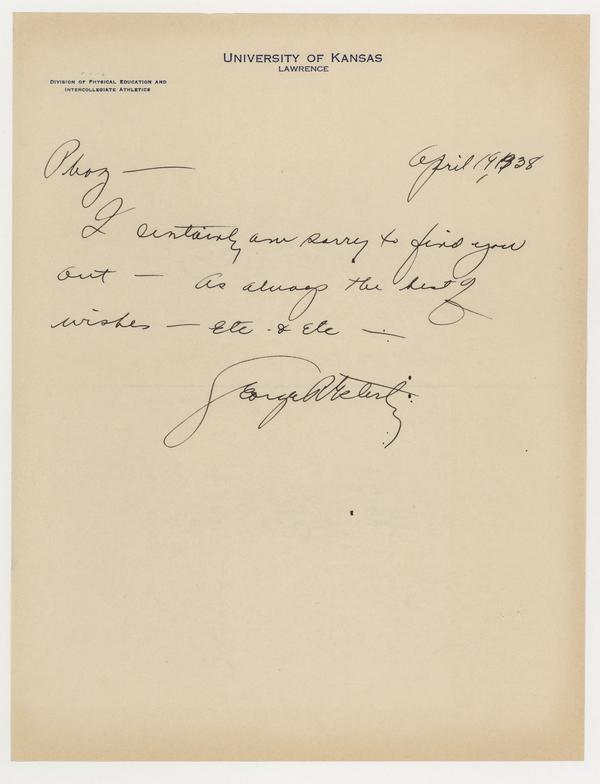 UNIVERSITY OF KANSAS
LAWRENCE
DIVISION OF PHYSICAL EDUCATION AND
INTERCOLLEGIATE ATHLETICS
April 1938
Phog —
I sentainly am sorry to find you
out — As always the best of
wishes — Etc. & Etc —
George